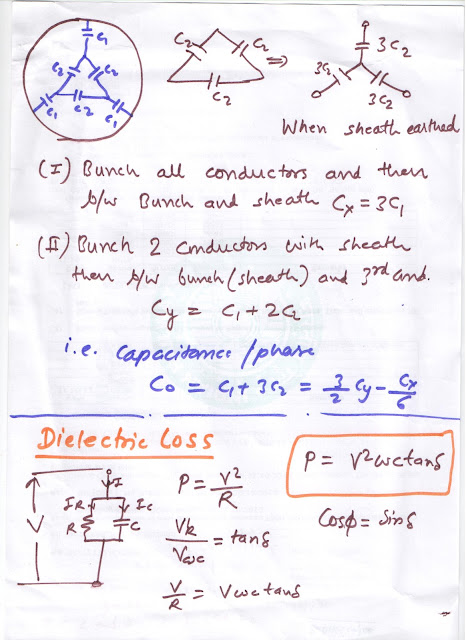 C1
C2 C2
C2
C1 C1
C2 C2
C2
⇒
3C2
3C2
3C2
When sheath earthed
(I) Bunch all conductors and then
b/w Bunch and sheath Cx = 3C1
(II) Bunch 2 conductors with sheath
then b/w bunch (sheath) and 3rd cond.
Cy = C1 + 2C2
i.e. Capacitance/phase
C0 = C1 + 3C2 = 3/2 Cy - Cx/6
Dielectric Loss
I
IR Ic
V
R C
P = V²/R
VR/Vωc = tanδ
V/R = Vωc tanδ
P = V²ωc tanδ
Cosφ = Sinδ